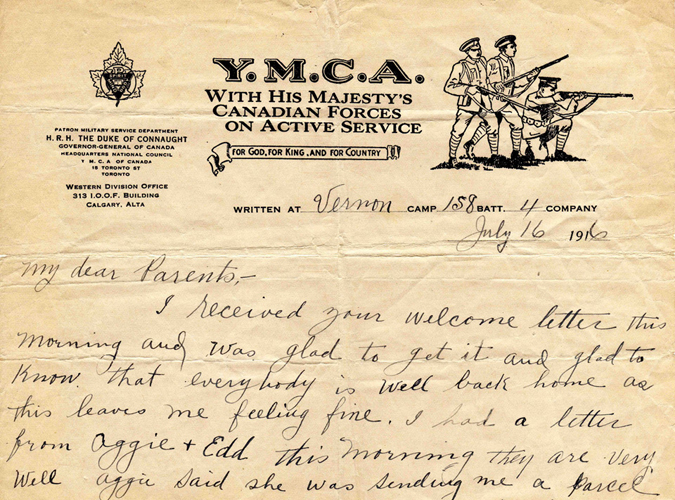 Y.M.C.A.
WITH HIS MAJESTY'S
CANADIAN FORCES
ON ACTIVE SERVICE
FOR GOD, FOR KING, AND FOR COUNTRY
PATRON MILITARY SERVICE DEPARTMENT
H.R.H. THE DUKE OF CONNAUGHT
GOVERNOR-GENERAL OF CANADA
HEADQUARTERS NATIONAL COUNCIL
Y M C A OF CANADA
15 TORONTO ST
TORONTO
WESTERN DIVISION OFFICE
313 I.O.O.F. BUILDING
CALGARY, ALTA
WRITTEN AT Vernon CAMP 158 BATT. 4 COMPANY
July 16 1916
My dear Parents,-
I received your welcome letter this
morning and was glad to get it and glad to
know that everybody is well back home as
this leaves me feeling fine. I had a letter
from Aggie + Edd this morning they are very
well aggie said she was sending me a parcel